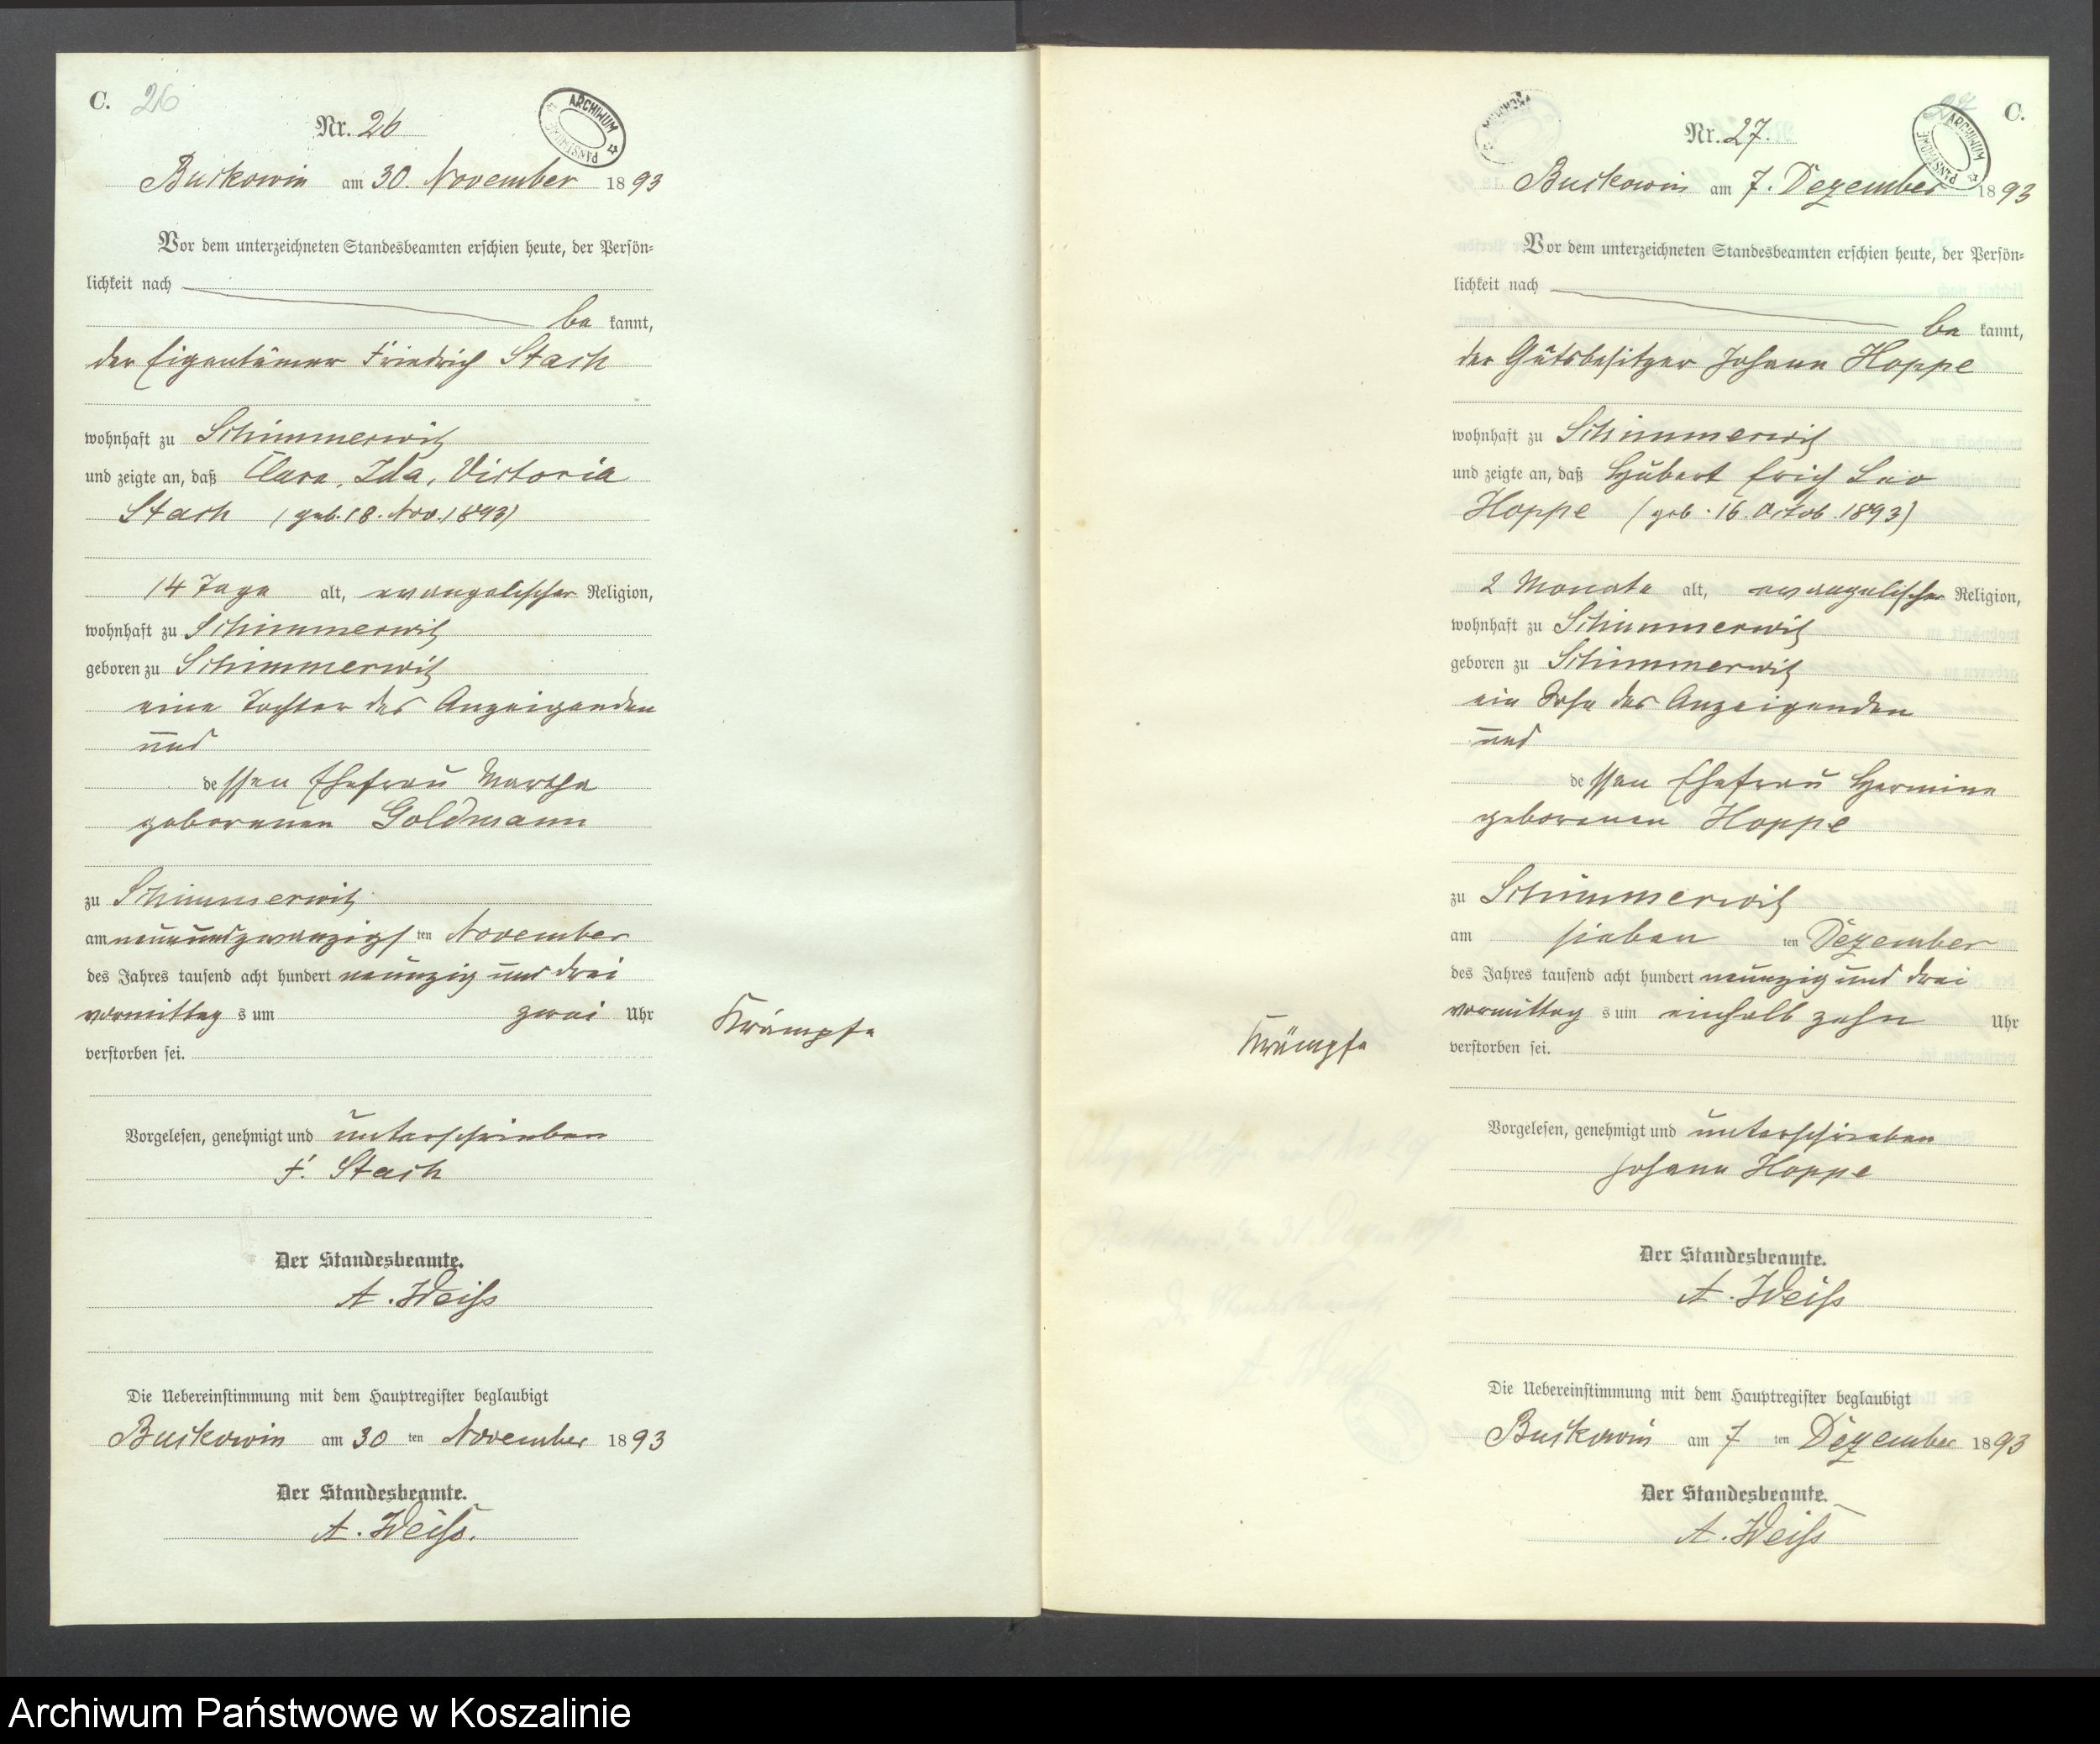 C. 26
ARCHIWUM PAŃSTWOWE
Nr. 26
Buckowin am 30. November 1893
Vor dem unterzeichneten Standesbeamten erschien heute, der Persön-
lichkeit nach
be kannt,
der Eigentümer Friedrich Stach
wohnhaft zu Schimmerwitz
und zeigte an, daß Clara, Ida, Victoria
Stach (geb. 18. Nov. 1893)
14 Tage alt, evangelischer Religion,
wohnhaft zu Schimmerwitz
geboren zu Schimmerwitz
eine Tochter des Anzeigenden
und
dessen Ehefrau Martha
geborenen Goldmann
zu Schimmerwitz
am neunundzwanzigsten November
des Jahres tausend acht hundert neunzig und drei
vormittag s um zwei Uhr
verstorben sei.
Krämpfe
Vorgelesen, genehmigt und unterschrieben
F. Stach
Der Standesbeamte.
A. Weiss
Die Uebereinstimmung mit dem Hauptregister beglaubigt
Buckowin am 30 ten November 1893
Der Standesbeamte.
A. Weiss.
27 C.
ARCHIWUM PAŃSTWOWE
Nr. 27.
Buckowin am 7. Dezember 1893
Vor dem unterzeichneten Standesbeamten erschien heute, der Persön-
lichkeit nach
be kannt,
der Gutsbesitzer Johann Hoppe
wohnhaft zu Schimmerwitz
und zeigte an, daß Hubert Erich Leo
Hoppe (geb. 16. Octob. 1893)
2 Monate alt, evangelischer Religion,
wohnhaft zu Schimmerwitz
geboren zu Schimmerwitz
ein Sohn des Anzeigenden
und
dessen Ehefrau Hermine
geborenen Hoppe
zu Schimmerwitz
am sieben ten Dezember
des Jahres tausend acht hundert neunzig und drei
vormittag s um einhalb zehn Uhr
verstorben sei.
Krämpfe
Vorgelesen, genehmigt und unterschrieben
Johann Hoppe
Der Standesbeamte.
A. Weiss
Die Uebereinstimmung mit dem Hauptregister beglaubigt
Buckowin am 7 ten Dezember 1893
Der Standesbeamte.
A. Weiss
Archiwum Państwowe w Koszalinie